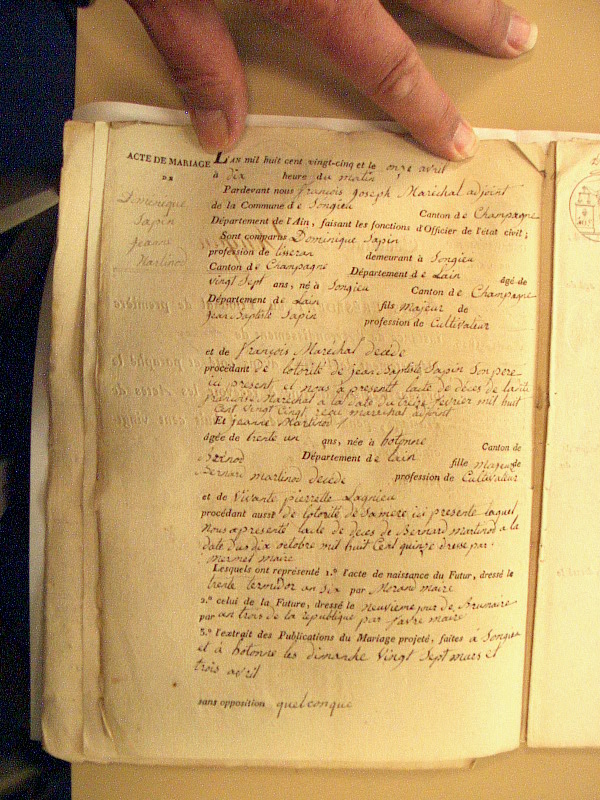 ACTE DE MARIAGE
DE
Dominique
Sapin
jeanne
Martinod
LAN mil huit cent vingt-cinq et le onze avril
à dix heure du matin
Pardevant nous françois joseph Maréchal adjoint
de la Commune de Songieu Canton de Champagne
Département de l'Ain, faisant les fonctions d'Officier de l'état civil;
Sont comparus Dominique Sapin
profession de demeurant à Songieu
Canton de Champagne Département de Lain âgé de
vingt Sept ans, né à Songieu Canton de Champagne
Département de Lain fils majeur de
jean Baptiste Sapin profession de Cultivateur
et de françois Maréchal decede
procédant de lotorité de jean Baptiste Sapin Son pere
ici present, il nous a presenté lacte de deces de
Maréchal a la date du treize fevrier mil huit
Cent vingt Cinq, reçu marechal adjoint
Et jeanne Martinod
âgée de trente un ans, née à hotonne Canton de
Brenod Département de lain fille majeur de
Bernard martinod decede profession de Cultivateur
et de Vivante pierrette Lagnieu
procédant aussi de lotorité de Samere ici presente laquel
nous a presenté lacte de deces de Bernard martinod a la
date du dix octobre mil huit Cent quinze dressé par
mermet maire
Lesquels ont représenté 1.º l'acte de naissance du Futur, dressé le
trente termidor an Six par Morand maire
2.º celui de la Future, dressé le neuvieme jour de Brumaire
par an trois de la république par favre maire
3.º l'extrait des Publications du Mariage projeté, faites à Songieu
et à hotonne les dimanche vingt Sept mars et
trois avril
sans opposition quelconque